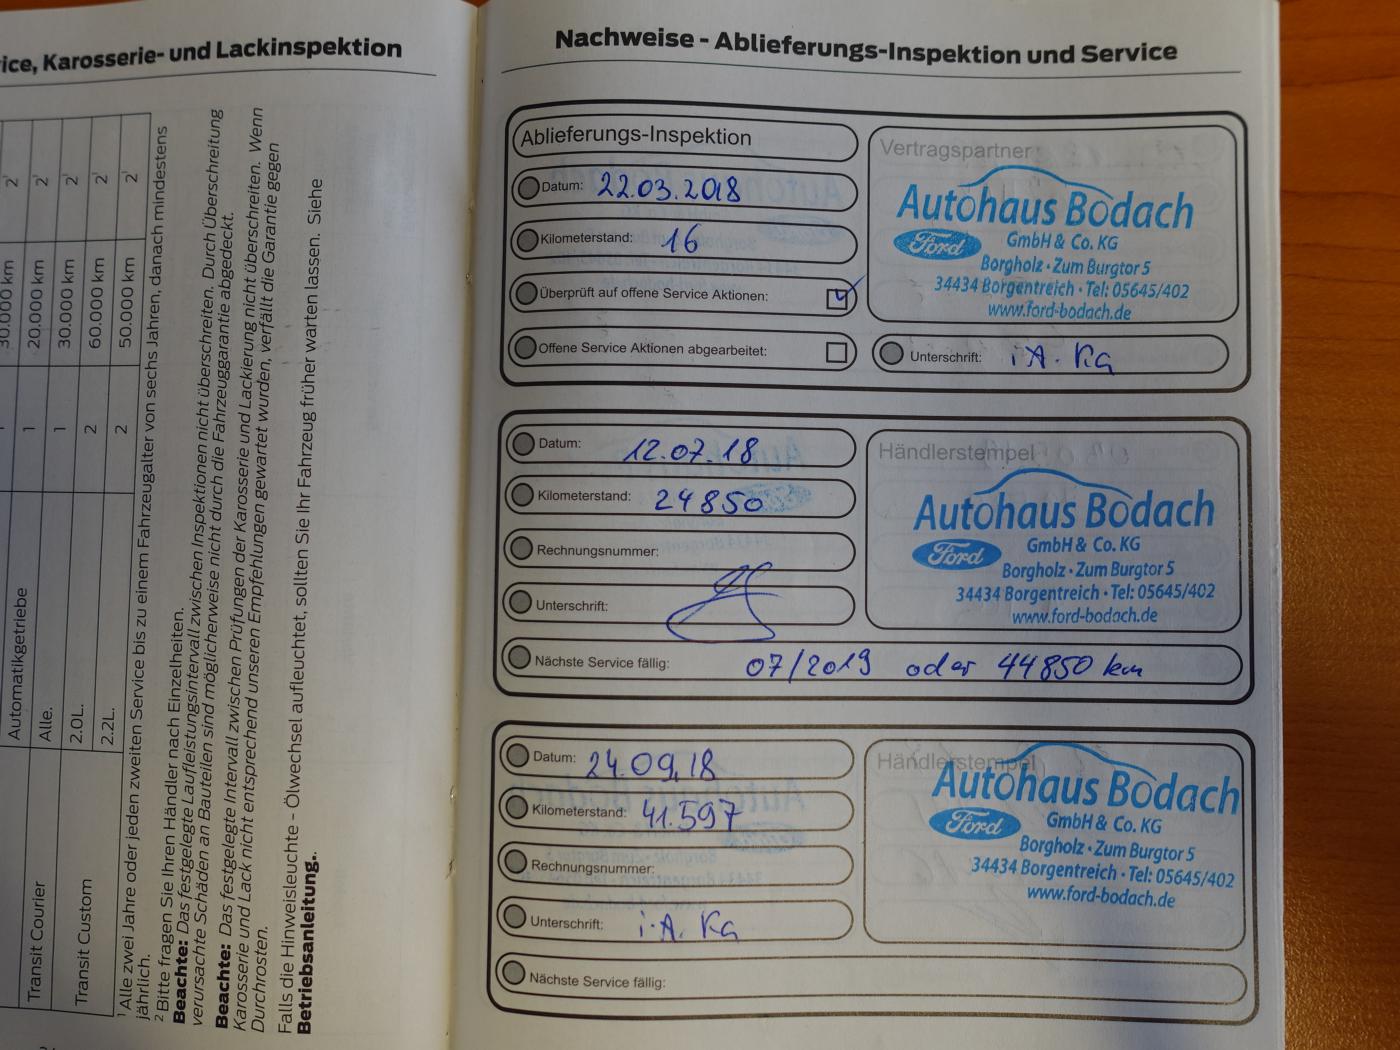 ice, Karosserie- und Lackinspektion
30.000 km 2¹
20.000 km 2¹
30.000 km 2¹
60.000 km 2¹
50.000 km 2¹
Automatikgetriebe 1
Transit Courier Alle. 1
Transit Custom 2.0L. 2
2.2L. 2
¹ Alle zwei Jahre oder jeden zweiten Service bis zu einem Fahrzeugalter von sechs Jahren, danach mindestens
jährlich.
² Bitte fragen Sie Ihren Händler nach Einzelheiten.
Beachte: Das festgelegte Laufleistungsintervall zwischen Inspektionen nicht überschreiten. Durch Überschreitung
verursachte Schäden an Bauteilen sind möglicherweise nicht durch die Fahrzeuggarantie abgedeckt.
Beachte: Das festgelegte Intervall zwischen Prüfungen der Karosserie und Lackierung nicht überschreiten. Wenn
Karosserie und Lack nicht entsprechend unseren Empfehlungen gewartet wurden, verfällt die Garantie gegen
Durchrosten.
Falls die Hinweisleuchte - Ölwechsel aufleuchtet, sollten Sie Ihr Fahrzeug früher warten lassen. Siehe
Betriebsanleitung.
Nachweise - Ablieferungs-Inspektion und Service
Ablieferungs-Inspektion
Datum: 22.03.2018
Kilometerstand: 16
Überprüft auf offene Service Aktionen:
Offene Service Aktionen abgearbeitet:
Vertragspartner
Autohaus Bodach
Ford GmbH & Co. KG
Borgholz · Zum Burgtor 5
34434 Borgentreich · Tel: 05645/402
www.ford-bodach.de
Unterschrift: i A. Ka
Datum: 12.07.18
Kilometerstand: 24850
Rechnungsnummer:
Unterschrift:
Händlerstempel
Autohaus Bodach
Ford GmbH & Co. KG
Borgholz · Zum Burgtor 5
34434 Borgentreich · Tel: 05645/402
www.ford-bodach.de
Nächste Service fällig: 07/2019 oder 44850 km
Datum: 24.09.18
Kilometerstand: 41.597
Rechnungsnummer:
Unterschrift: i.A. Ka
Händlerstempel
Autohaus Bodach
Ford GmbH & Co. KG
Borgholz · Zum Burgtor 5
34434 Borgentreich · Tel: 05645/402
www.ford-bodach.de
Nächste Service fällig: